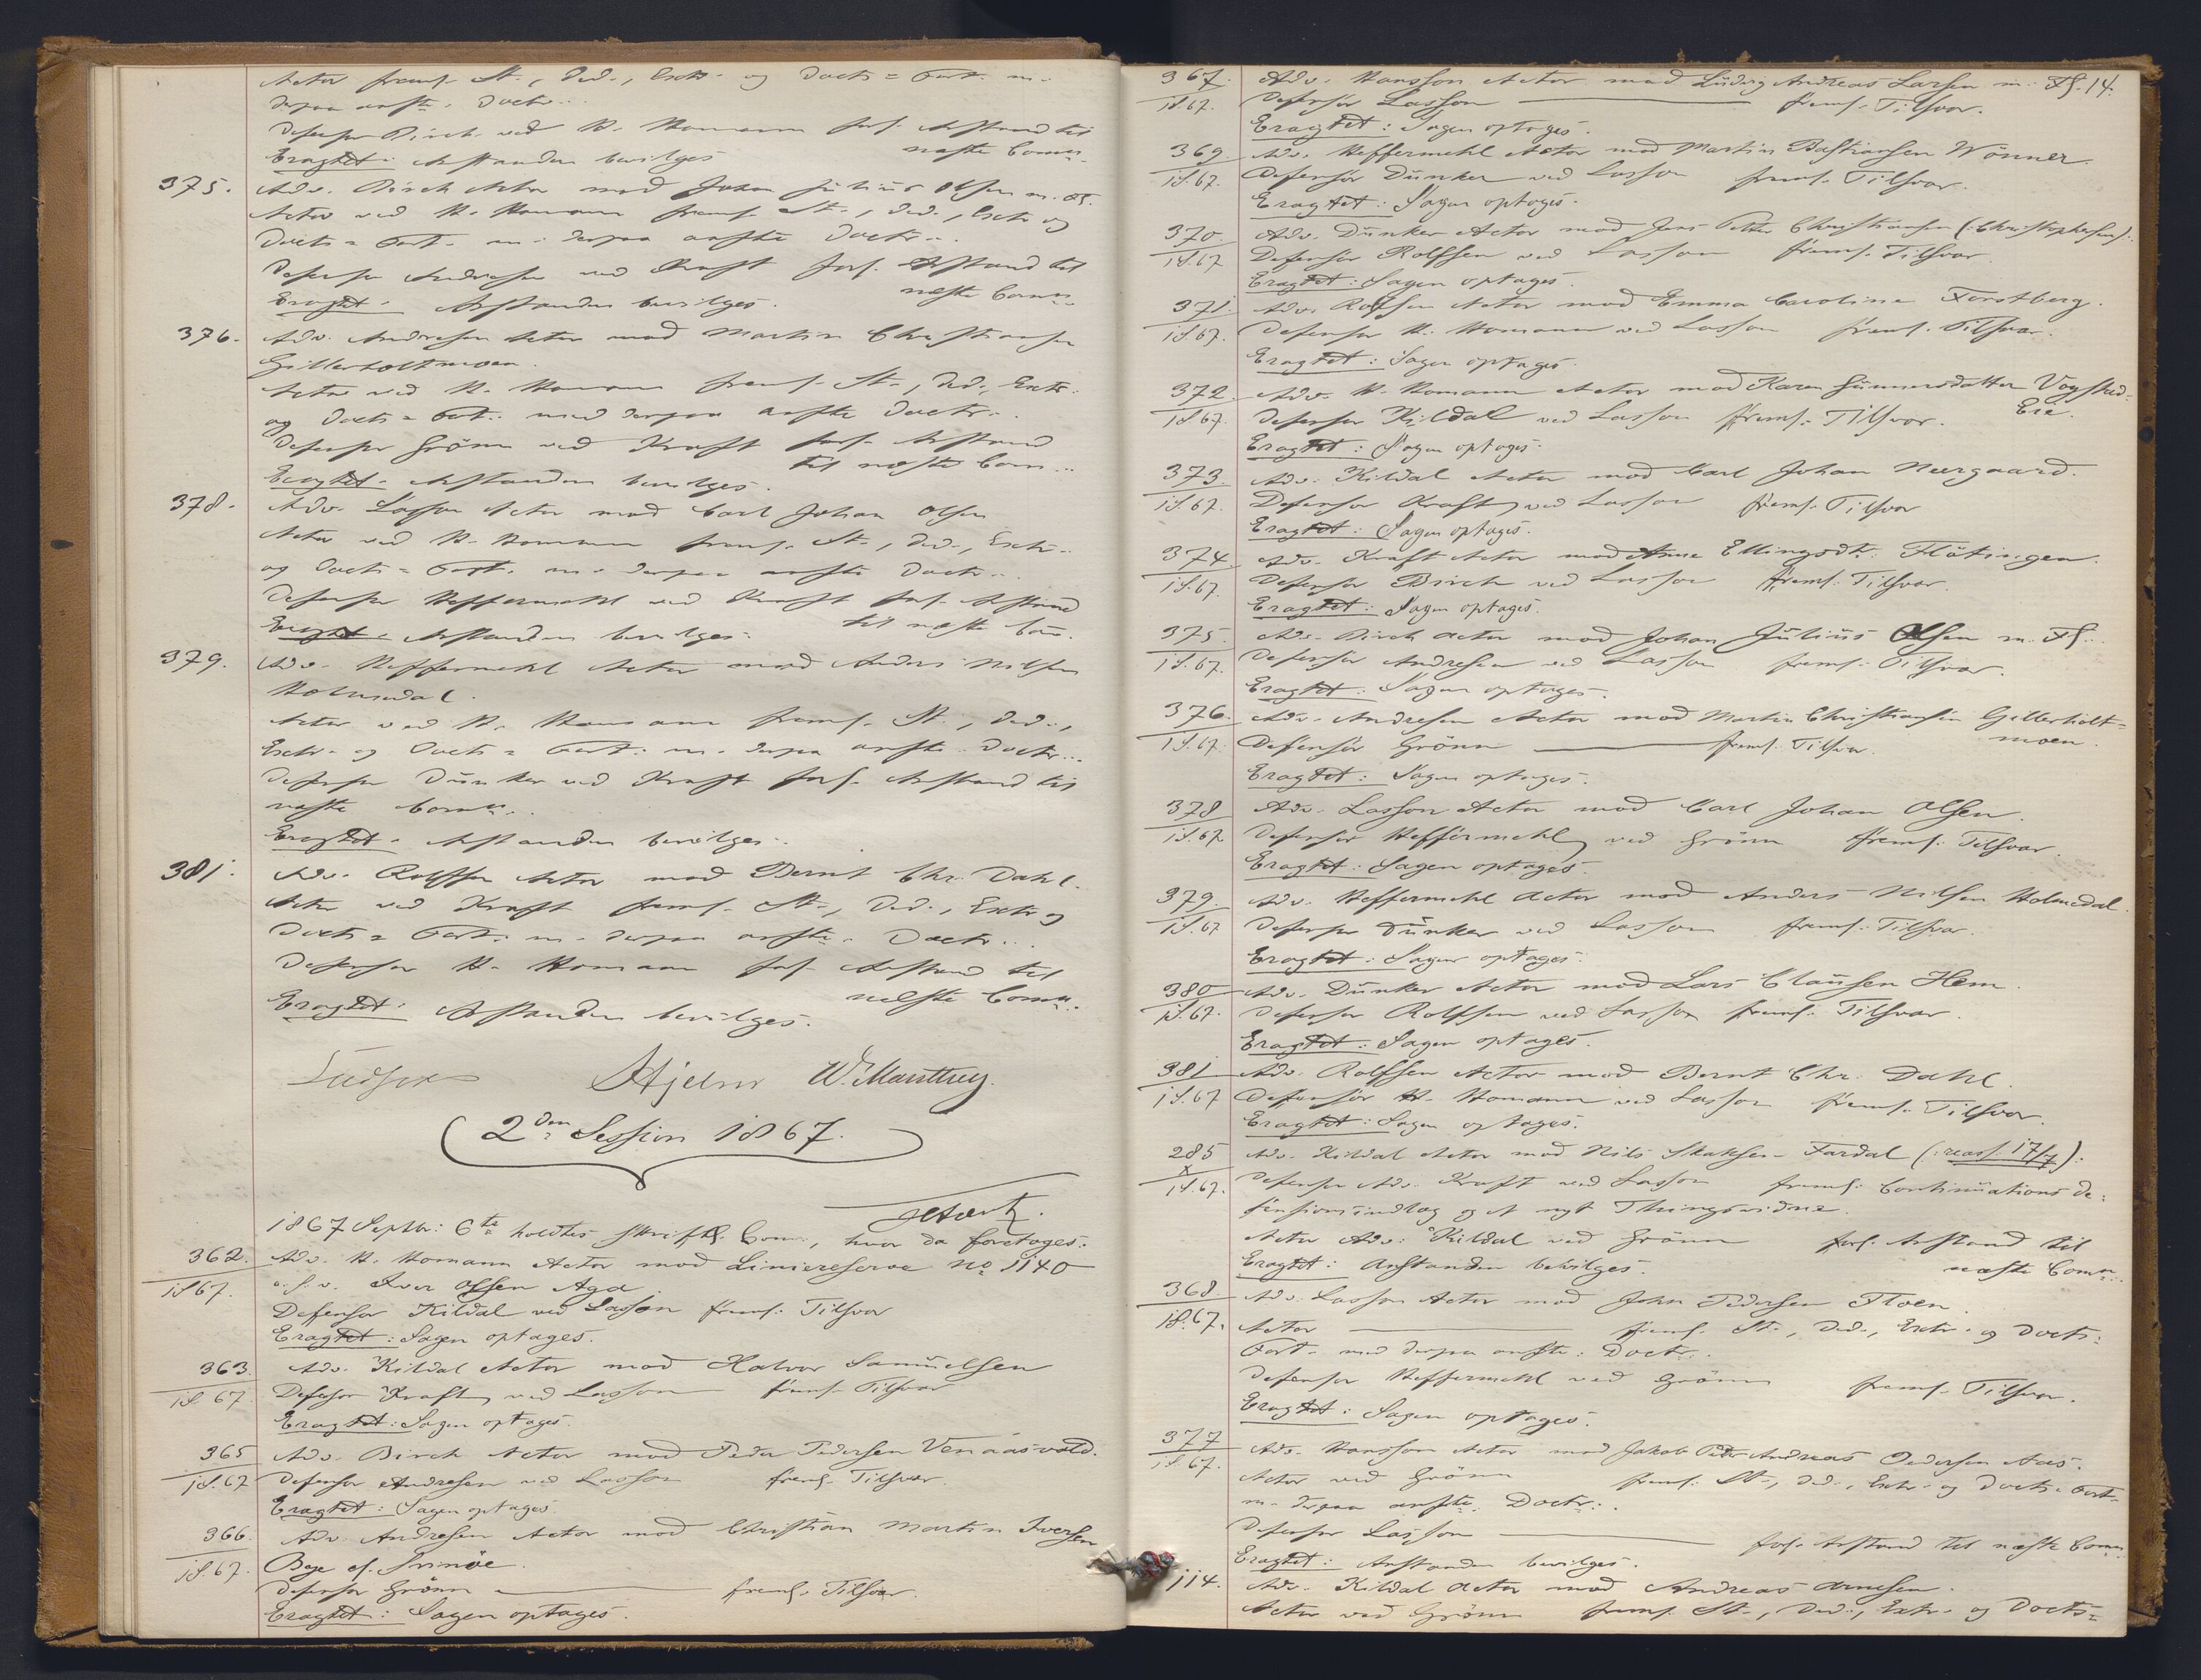 Actor frems. St., Ded., Extr. og Docts = Fort. m.
derpaa anfte. Doctr..
Defensor Birch ved H. Homann forl. Anstand til
næste Comn.
Eragtet: Anstanden bevilges
375. Adv. Birch Actor mod Johan Julius Olsen m. Fl.
Actor ved H. Homann frems. St., Ded., Extr. og
Docts = Fort. m. derpaa anfte Doctr..
Defensor Andresen ved Kraft forl. Anstand til
næste Comn.
Eragtet: Anstanden bevilges.
376. Adv. Andresen Actor mod Martin Christiansen
Gillerholtmoen.
Actor ved H. Homann frems. St., Ded., Extr.
og Docts = Fort. med derpaa anfte Doctr..
Defensor Grönn ved Kraft forl. Anstand
til næste Com...
Eragtet: Anstanden bevilges.
378. Adv. Lasson Actor mod Carl Johan Olsen
Actor ved H. Homann frems. St., Ded., Extr..
og Docts = Fort. m. derpaa anfte Doctr..
Defensor Heffermehl ved Kraft forl. Anstand
til næste Com.
Eragtet: Anstanden bevilges.
379. Adv. Heffermehl Actor mod Anders Nilsen
Holmedal.
Actor ved H. Homann frems. St., Ded.,
Extr. og Docts = Fort. m. derpaa anfte. Doctr..
Defensor Dunker ved Kraft forl. Anstand til
næste Comn..
Eragtet: Anstanden bevilges.
381. Adv. Rolffsen Actor mod Bernt Chr. Dahl.
Actor ved Kraft frems. St., Ded., Extr. og
Docts = Fort. m. derpaa anfte. Doctr..
Defensor H. Homann forl. Anstand til
næste Comn..
Eragtet: Anstanden bevilges.
Hjelm W. Manthey.
2den Session 1867.
1867 Septbr: 6te holdtes skriftl. Com., hvor da foretages:
362. Adv. H. Homann Actor mod Liniereserve No 1140
1867. o. s. v. Iver Olsen Aga.
Defensor Kildal ved Lasson frems. Tilsvar
Eragtet: Sagen optages.
363. Adv. Kildal Actor mod Halvor Samuelsen
1867. Defensor Kraft ved Lasson frems. Tilsvar
Eragtet: Sagen optages.
365 Adv. Birch Actor mod Peder Pedersen Venaasvold.
1867 Defensor Andresen ved Lasson frems. Tilsvar.
Eragtet: Sagen optages.
366. Adv. Andresen Actor mod Christian Martin Iversen
1867. Boge el. Svinöe.
Defensor Grönn — frems. Tilsvar.
Eragtet: Sagen optages.
367. Adv. Hansson Actor mod Ludvig Andreas Larsen m. Fl. 14.
1867. Defensor Lasson — frems. Tilsvar.
Eragtet: Sagen optages.
369 Adv. Heffermehl Actor mod Martin Bastiansen Wönner.
1867. Defensor Dunker ved Lasson frems. Tilsvar.
Eragtet: Sagen optages.
370. Adv. Dunker Actor mod Jens Petter Christiansen (:Christophersen:).
1867 Defensor Rolffsen ved Lasson frems. Tilsvar.
Eragtet: Sagen optages.
371. Adv. Rolffsen Actor mod Emma Caroline Forstberg.
1867. Defensor H. Homann ved Lasson frems. Tilsvar.
Eragtet: Sagen optages.
372. Adv. H. Homann Actor mod Karen Gunnersdatter Vogsted-
Eie.
1867. Defensor Kildal ved Lasson frems. Tilsvar.
Eragtet: Sagen optages.
373. Adv. Kildal Actor mod Carl Johan Neergaard.
1867. Defensor Kraft ved Lasson frems. Tilsvar
Eragtet: Sagen optages.
374. Adv. Kraft Actor mod Anne Ellingsdtr. Flötingen.
1867. Defensor Birch ved Lasson frems. Tilsvar.
Eragtet: Sagen optages.
375 Adv. Birch Actor mod Johan Julius Olsen m. Fl..
1867. Defensor Andresen ved Lasson frems. Tilsvar.
Eragtet: Sagen optages.
376. Adv. Andresen Actor mod Martin Christiansen Gillerholt-
moen.
1867. Defensor Grönn — frems. Tilsvar.
Eragtet: Sagen optages.
378 Adv. Lasson Actor mod Carl Johan Olsen.
1867 Defensor Heffermehl ved Grönn frems. Tilsvar.
Eragtet: Sagen optages.
379. Adv. Heffermehl Actor mod Anders Nilsen Holmedal.
1867 Defensor Dunker ved Lasson frems. Tilsvar.
Eragtet: Sagen optages.
380 Adv. Dunker Actor mod Lars Clausen Hem.
1867. Defensor Rolffsen ved Lasson frems. Tilsvar.
Eragtet: Sagen optages.
381 Adv. Rolffsen Actor mod Bernt Chr. Dahl.
1867 Defensor H. Homann ved Lasson frems. Tilsvar.
Eragtet: Sagen optages.
285 Adv. Kildal Actor mod Nils Skaksen Fardal (:reass. 17/7):
1867. Defensor Adv. Kraft ved Lasson frems. Continuations de=
fensionsindlæg og et nyt Thingsvidne.
Actor Adv. Kildal ved Grönn forl. Anstand til
næste Comn..
Eragtet: Anstanden bevilges.
368. Adv. Lasson Actor mod John Pedersen Floen.
1867. Actor — frems. St., Ded., Extr. og Docts=
Fort. med derpaa anfte. Doctr..
Defensor Heffermehl ved Grönn frems. Tilsvar.
Eragtet: Sagen optages.
377 Adv. Hansson Actor mod Jakob Peder Andreas Pedersen Aas.
1867. Actor ved Grönn frems. St., Ded., Extr. og Docts = Fort.
m. derpaa anfte. Doctr..
Defensor Lasson — forl. Anstand til næste Comn.
Eragtet: Anstanden bevilges.
114. Adv. Kildal Actor mod Andreas Arnesen.
Actor ved Grönn frems. St., Ded., Extr. og Docts=